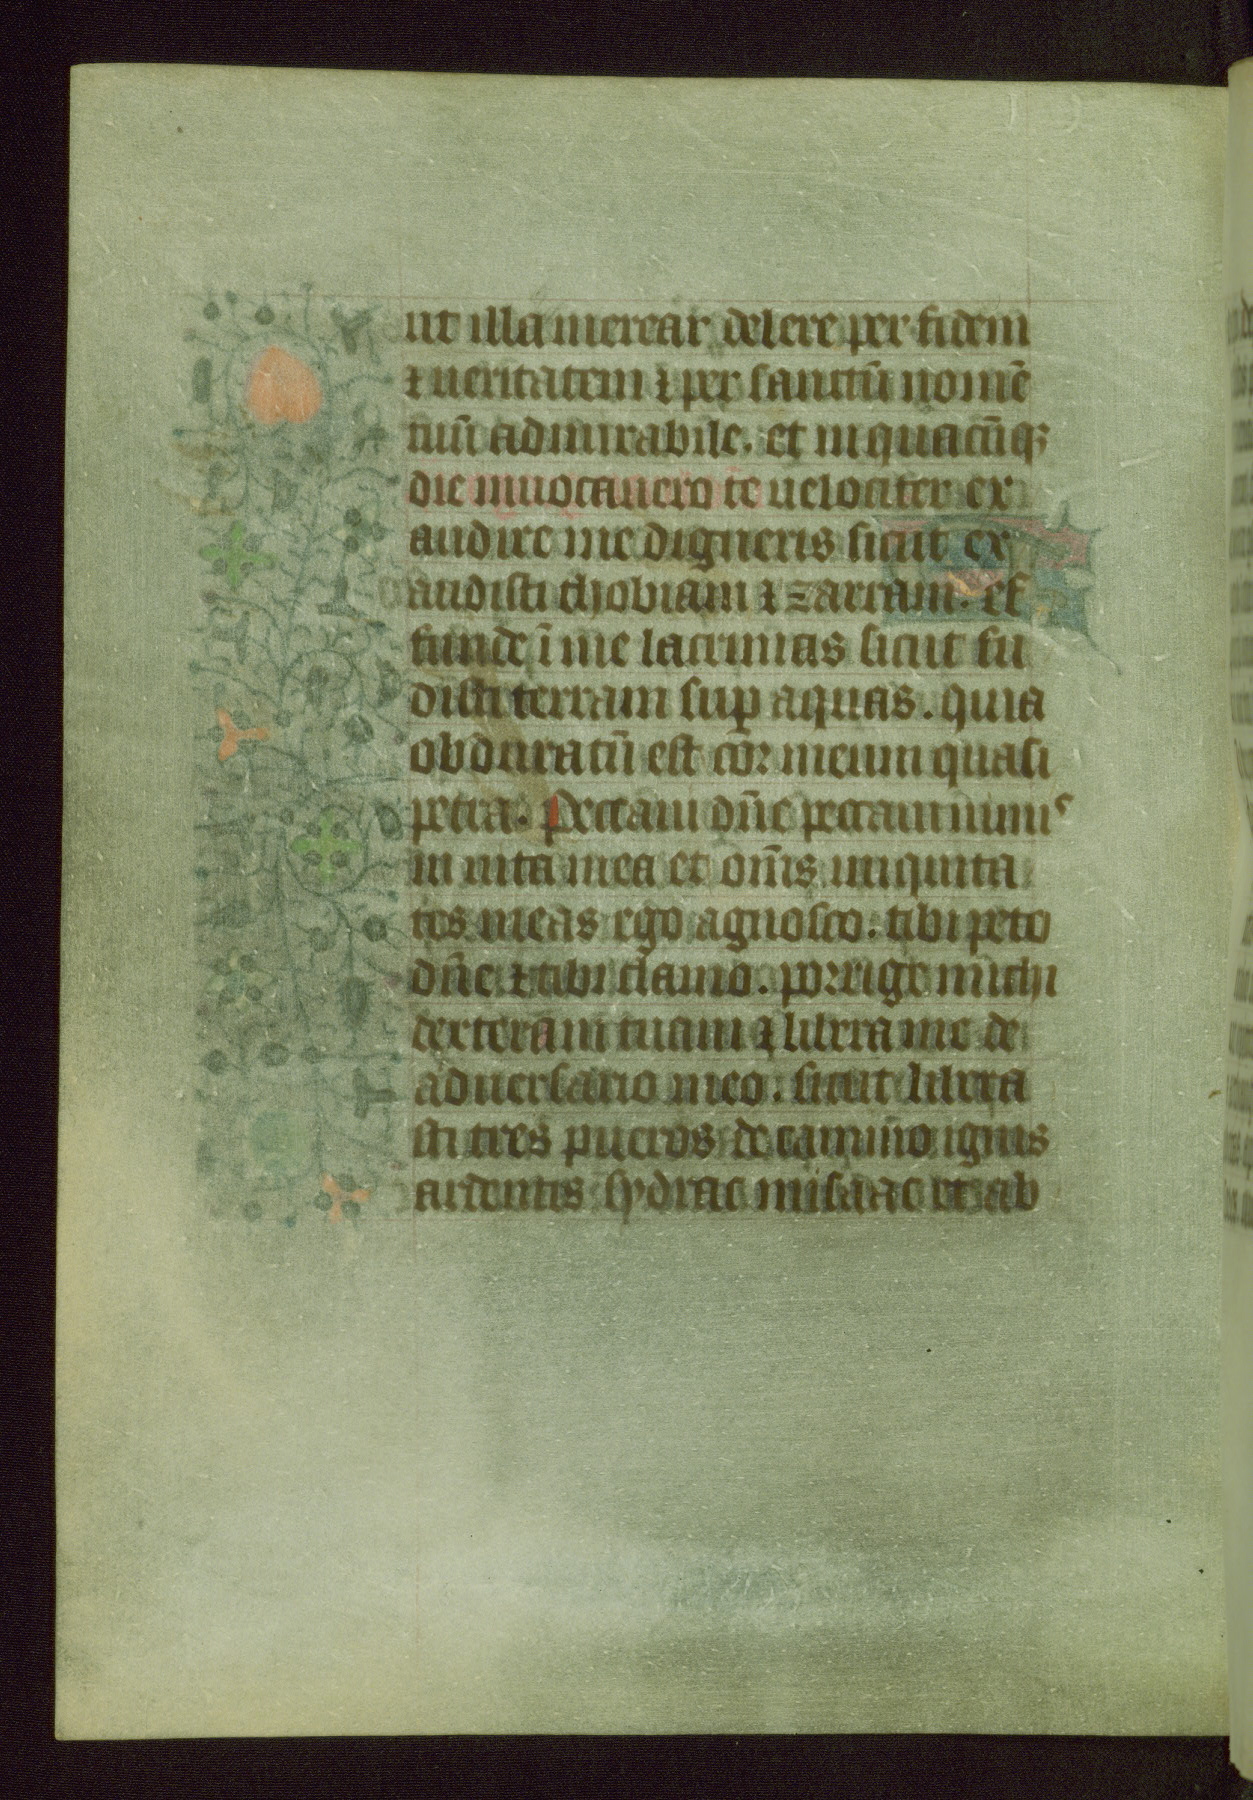 ut illa merear delere per fidem
⁊ ueritatem ⁊ per sanctū nomē
tuū admirabile. et in quacūqꝫ
die inuocauero te uelociter ex
audire me digneris sicut ex
audisti thobiam ⁊ zarram. ef
funde ī me lacrimas sicut fu
disti terram suꝑ aquas. quia
obduratū est cor meum quasi
petra. Peccaui dn̄e peccaui nimis
in uita mea et om̄s iniquita
tes meas ego agnosco. tibi peto
dn̄e ⁊ tibi clamo. porrige michi
dexteram tuam ⁊ libera me de
aduersario meo. sicut libera
sti tres pueros de camino ignis
ardentis sydrac misaac et ab